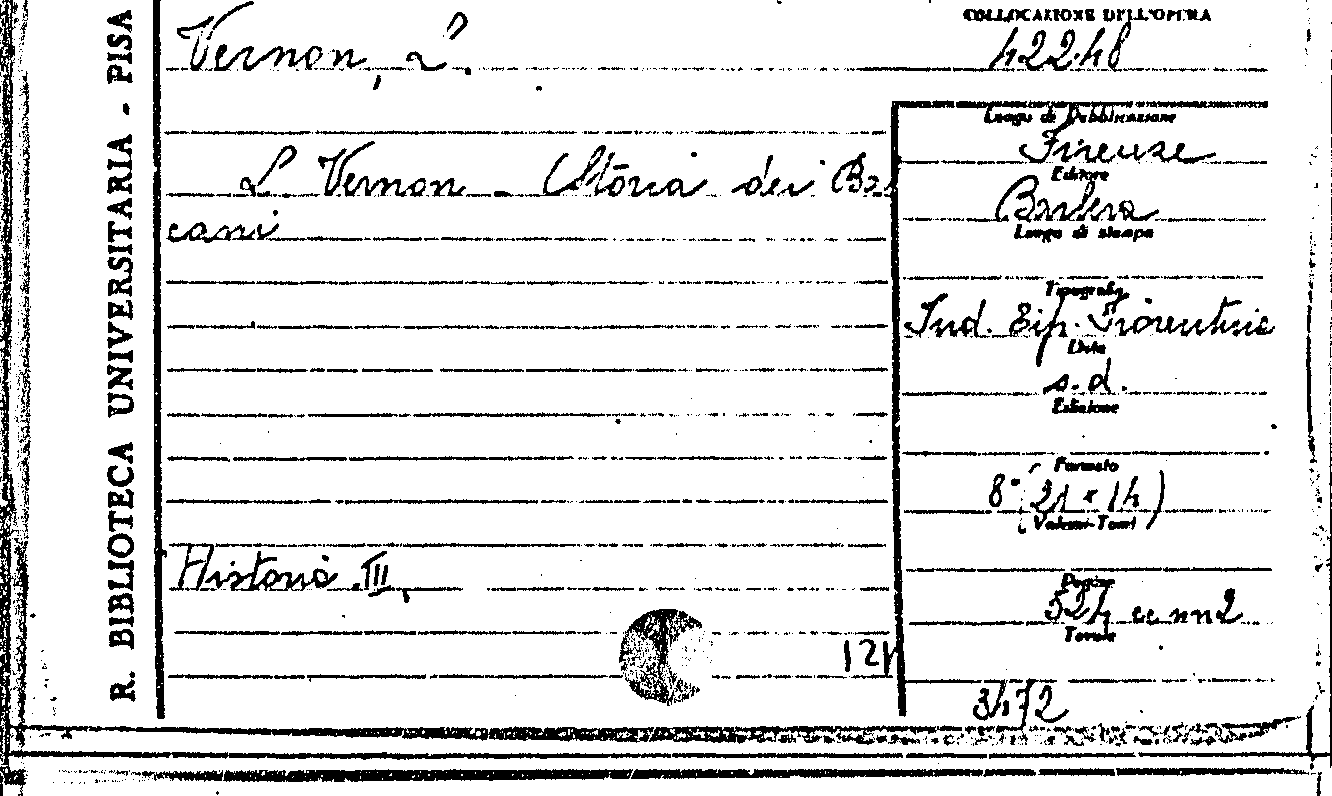 R. BIBLIOTECA UNIVERSITARIA - PISA
Vernon, L.
L. Vernon - Storia dei Bal
cani
Historia III
121
COLLOCAZIONE DELL'OPERA
422.48
Luogo di Pubblicazione
Firenze
Editore
Barbera
Luogo di stampa
Tipografia
Ind. Tip. Fiorentina
Data
s. d.
Edizione
Formato
8° (21 x 14)
Volumi-Tomi
Pagine
524 cc nn 2
Tavole
3472